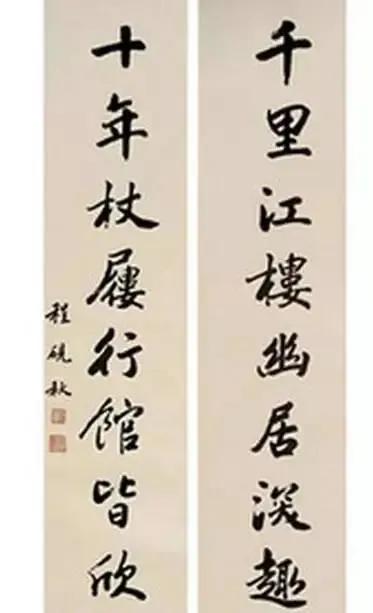 千里江樓幽居淡趣
十年杖屨行館皆欣
程硯秋